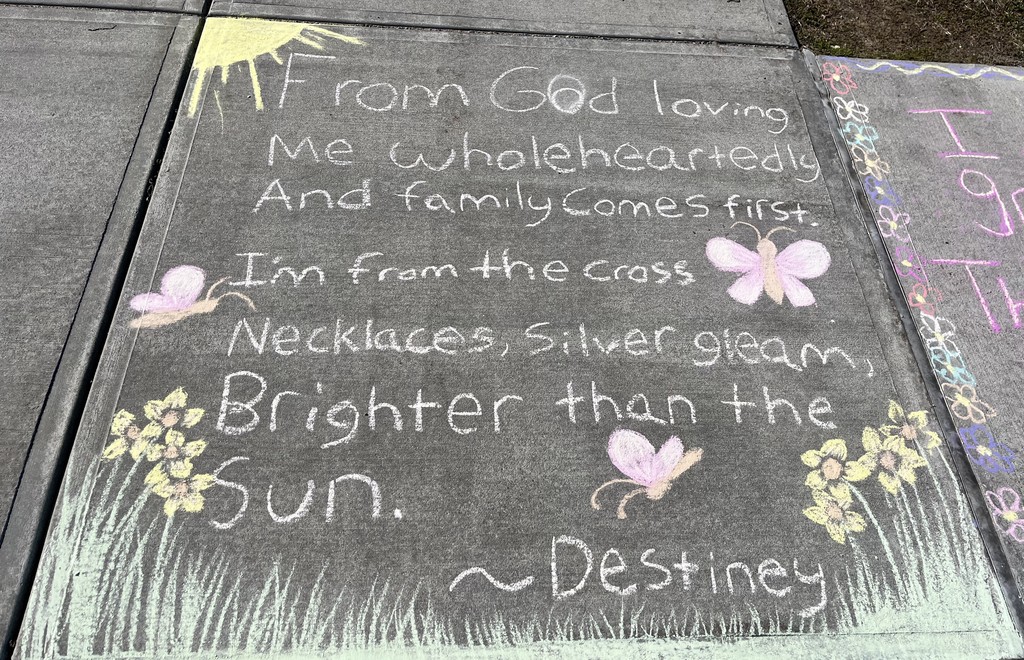 From God loving
Me wholeheartedly
And family Comes first.
I'm from the cross
Necklaces, silver gleam,
Brighter than the
Sun.
~ Destiney
I
Th